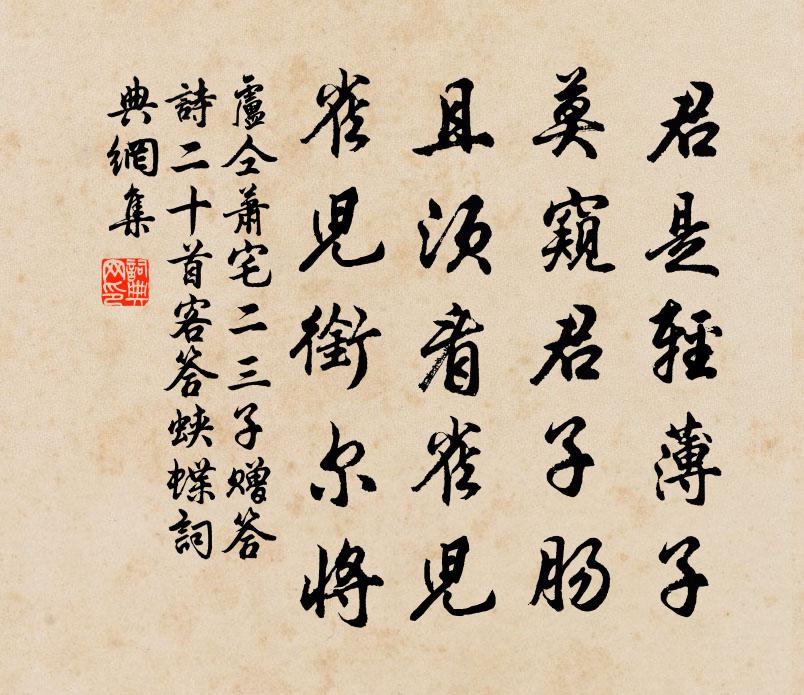 君是輕薄子
莫窺君子肠
且須看雀児
雀児銜尔將
盧仝蕭宅二三子贈答
詩二十首客答蛺蝶詞
典網集
詞典网印